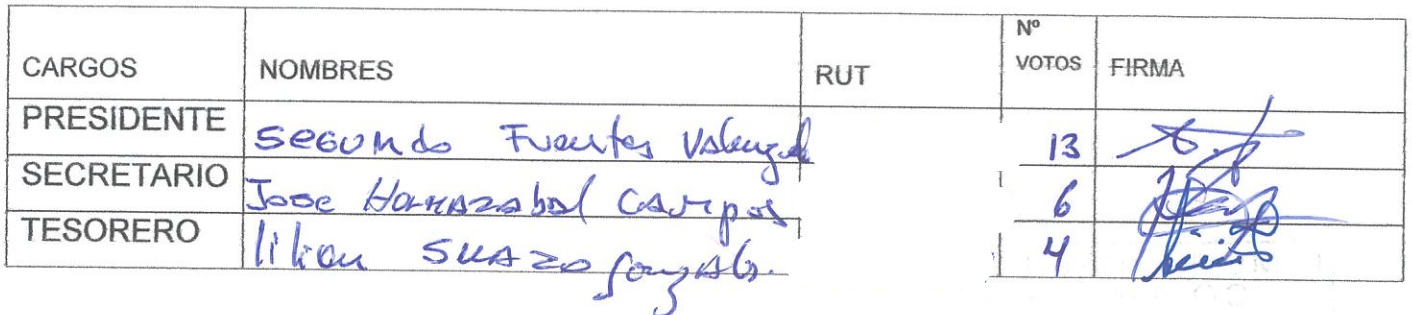 CARGOS NOMBRES RUT Nº VOTOS FIRMA
PRESIDENTE Segundo Fuentes Valenzuela 13
SECRETARIO Jose Hormazabal Campos 6
TESORERO lilian Suazo Gonzalez. 4